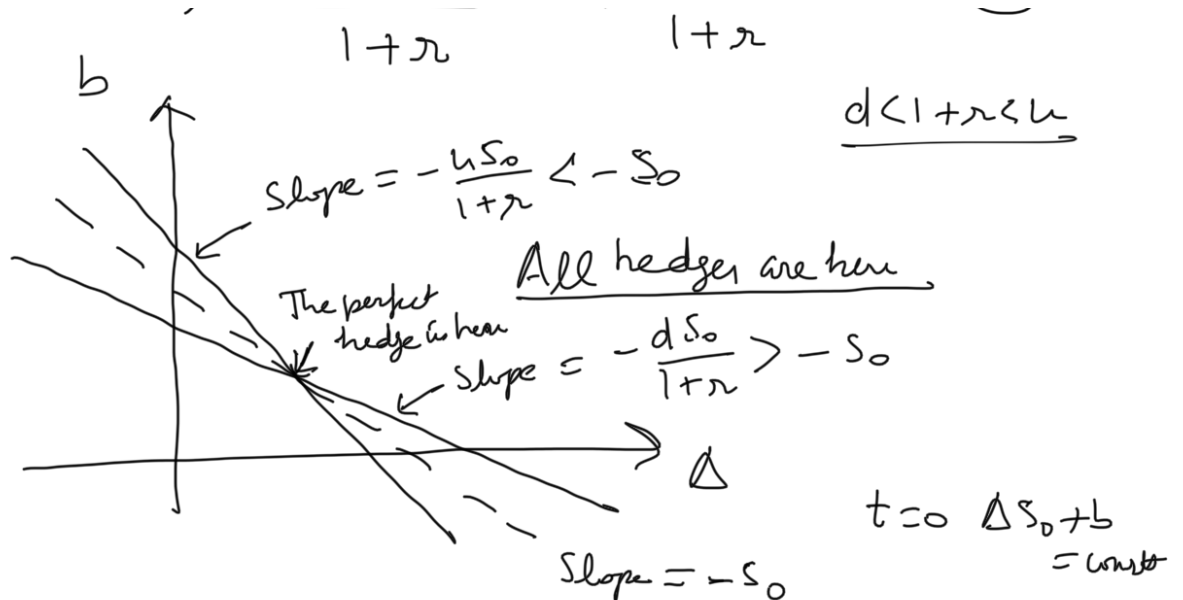 1+r
1+r
b
d<1+r<u
Slope = - uS₀/1+r < - S₀
All hedges are here
The perfect
hedge is here
Slope = - dS₀/1+r > - S₀
Δ
t=0 ΔS₀+b
= const
Slope = -S₀